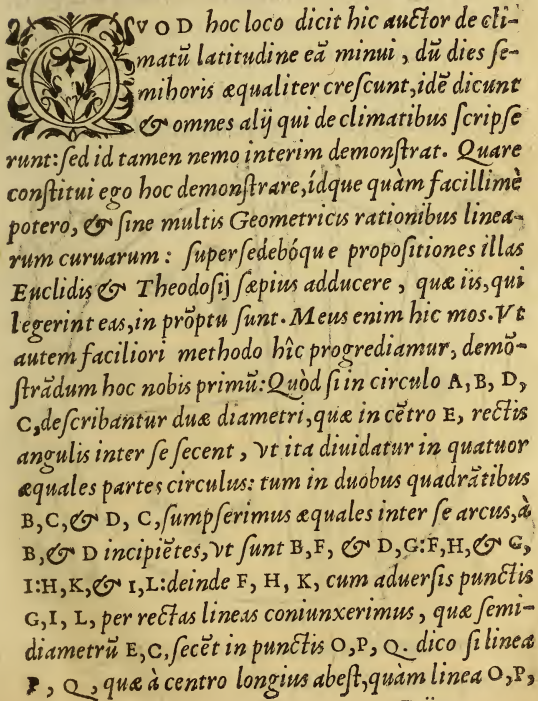 QVOD hoc loco dicit hic auctor de cli-
matū latitudine eā minui, dū dies se-
mihoris æqualiter crescunt, idē dicunt
& omnes alij qui de climatibus scripse
runt: sed id tamen nemo interim demonstrat. Quare
constitui ego hoc demonstrare, ídque quàm facillimè
potero, & sine multis Geometricis rationibus linea-
rum curuarum: supersedebóque propositiones illas
Euclidis & Theodosij sæpius adducere, quæ iis, qui
legerint eas, in prōptu sunt. Meus enim hic mos. Vt
autem faciliori methodo hîc progrediamur, demō-
strādum hoc nobis primū: Quòd si in circulo A, B, D,
C, describantur duæ diametri, quæ in cētro E, rectis
angulis inter se secent, vt ita diuidatur in quatuor
æquales partes circulus: tum in duobus quadrātibus
B, C, & D, C, sumpserimus æquales inter se arcus, à
B, & D incipiētes, vt sunt B, F, & D, G: F, H, & G,
I: H, K, & I, L: deinde F, H, K, cum aduersis punctis
G, I, L, per rectas lineas coniunxerimus, quæ semi-
diametrū E, C, secēt in punctis O, P, Q. dico si linea
P, Q, quæ à centro longius abest, quàm linea O, P,